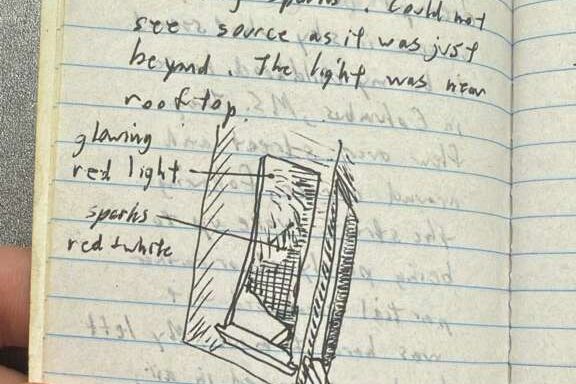 sparks. Could not
see source as it was just
beyond. The light was near
rooftop.
glowing
red light
sparks
red + white